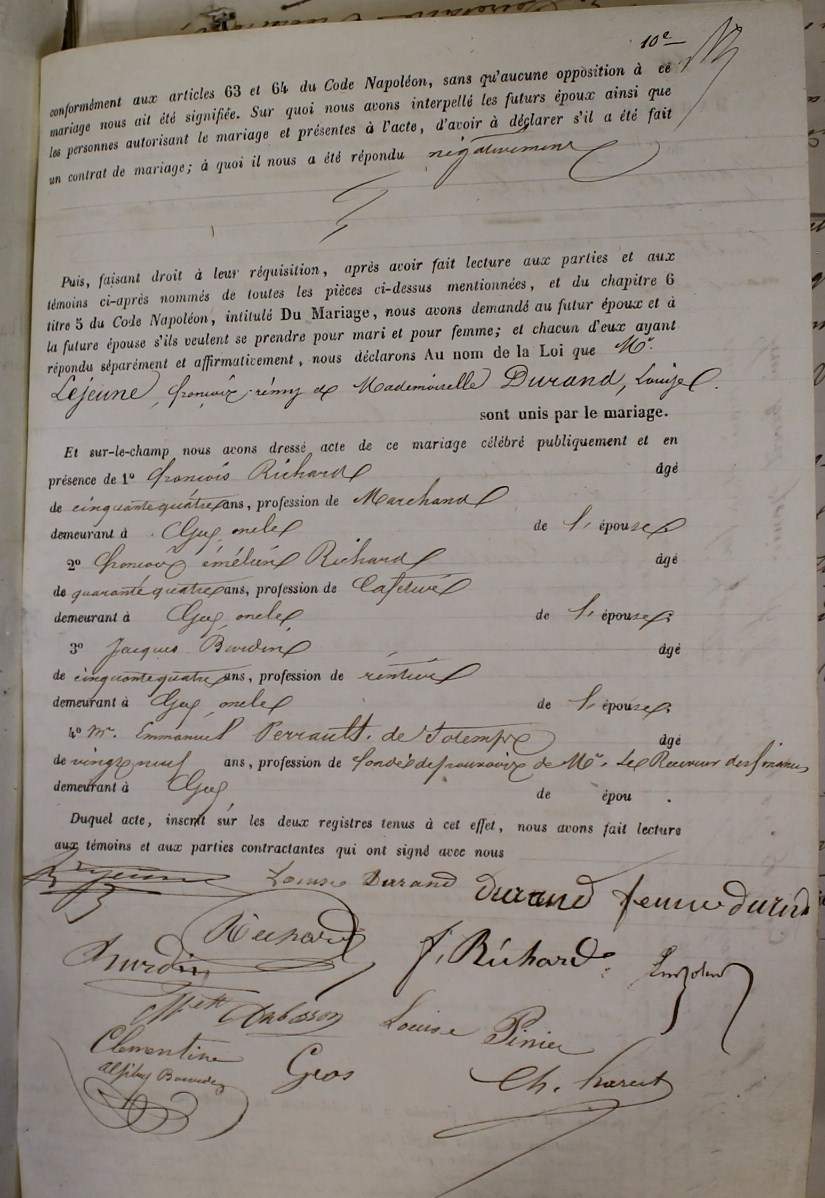 10e
conformément aux articles 63 et 64 du Code Napoléon, sans qu'aucune opposition à ce
mariage nous ait été signifiée. Sur quoi nous avons interpellé les futurs époux ainsi que
les personnes autorisant le mariage et présentes à l'acte, d'avoir à déclarer s'il a été fait
un contrat de mariage; à quoi il nous a été répondu négativement
Puis, faisant droit à leur réquisition, après avoir fait lecture aux parties et aux
témoins ci-après nommés de toutes les pièces ci-dessus mentionnées, et du chapitre 6
titre 5 du Code Napoléon, intitulé Du Mariage, nous avons demandé au futur époux et à
la future épouse s'ils veulent se prendre pour mari et pour femme; et chacun d'eux ayant
répondu séparément et affirmativement, nous déclarons Au nom de la Loi que Mr.
Lejeune, françois rémy et Mademoiselle Durand, Louise.
sont unis par le mariage.
Et sur-le-champ nous avons dressé acte de ce mariage célébré publiquement et en
présence de 1º françois Richard âgé
de cinquante quatre ans, profession de Marchand
demeurant à Gy, oncle de l' épouse
2º françois Richard âgé
de quarante quatre ans, profession de Cafetier
demeurant à Gy, oncle de l' épouse;
3º Jacques Burdin âgé
de cinquante quatre ans, profession de rentier
demeurant à Gy, oncle de l' épouse;
4º Mr. Emmanuel Perrault. de âgé
de vingt neuf ans, profession de fondé de pouvoir de Mr. Le Receveur des finances
demeurant à Gy de épou .
Duquel acte, inscrit sur les deux registres tenus à cet effet, nous avons fait lecture
aux témoins et aux parties contractantes qui ont signé avec nous
Lejeune Louise Durand Durand femme durand
Richard f. Richard
Burdin
Louise Pinier
Clementine Gros
Ch.